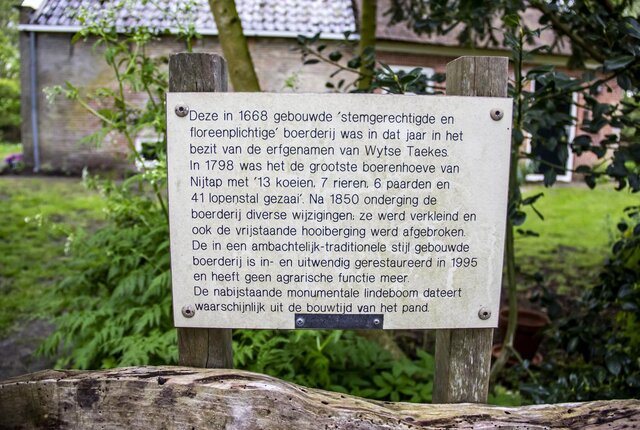 Deze in 1668 gebouwde 'stemgerechtigde en
floreenplichtige' boerderij was in dat jaar in het
bezit van de erfgenamen van Wytse Taekes.
In 1798 was het de grootste boerenhoeve van
Nijtap met '13 koeien, 7 rieren, 6 paarden en
41 lopenstal gezaai'. Na 1850 onderging de
boerderij diverse wijzigingen; ze werd verkleind en
ook de vrijstaande hooiberging werd afgebroken.
De in een ambachtelijk-traditionele stijl gebouwde
boerderij is in- en uitwendig gerestaureerd in 1995
en heeft geen agrarische functie meer.
De nabijstaande monumentale lindeboom dateert
waarschijnlijk uit de bouwtijd van het pand.